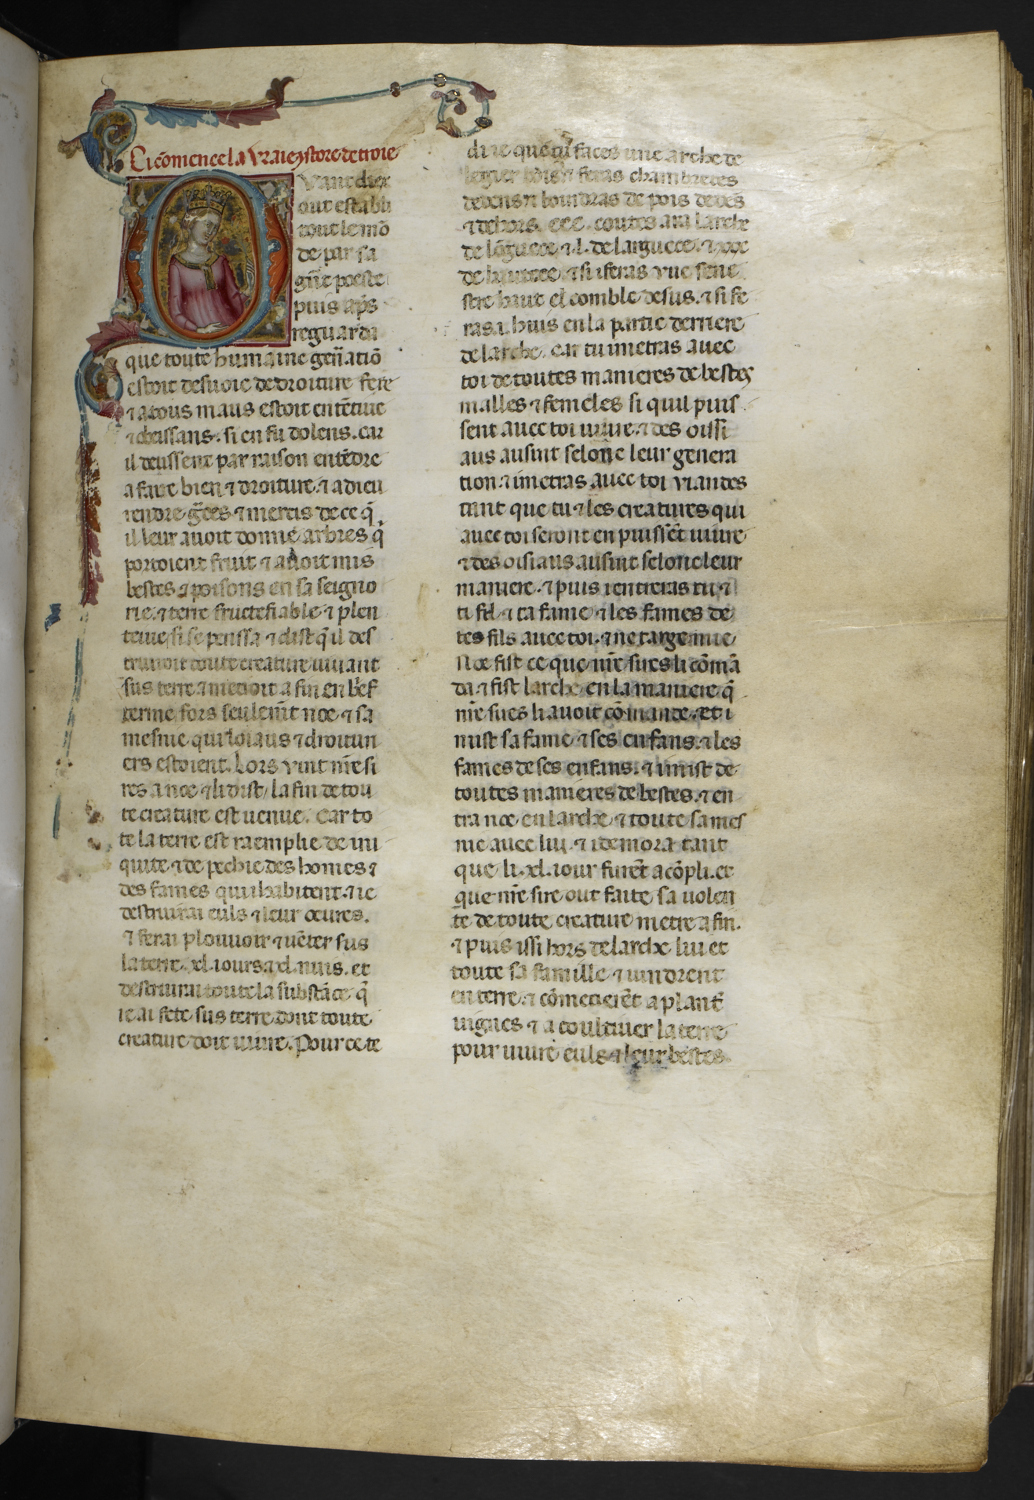 Ci cōmence la vraie ystore de troie
Quant diex
out establi
tout le mō
de par sa
puis ap̄s
reguarda
que toute humaine gen̄atiō
estoit desuoie de droiture fere
⁊ a tous maus estoit entētiue
si en fu dolens. car
il deussent par raison entēdre
a faire bien ⁊ droiture. ⁊ a dieu
rendre gr̄ces ⁊ mercis de ce q̄
il leur auoit donne arbres q̄
portoient fruit ⁊ auoit mis
bestes ⁊ poisons en sa seigno
rie. ⁊ terre fructefiable ⁊ plen
teiue. si se penssa ⁊ dist q̄ il des
truiroit toute creature uiuant
sus terre ⁊ metroit a fin en bref
terme fors seulem̄t noe ⁊ sa
mesnie qui loiaus ⁊ droituri
ers estoient. Lors vint nr̄e si
res a noe ⁊ li dist / la fin de tou
te creature est uenue. car to
te la terre est raemplie de ini
quite ⁊ de pechie des homes ⁊
des fames qui i habitent. ⁊ ie
destruirai euls ⁊ leur oeures.
⁊ ferai plouuoir ⁊ uēter sus
la terre .xl. iours ⁊ .xl. nuis. et
destruirai toute la substāce q̄
ie ai fete sus terre dont toute
creature doit uiure. Pour ce te
di ie que tu faces une arche de
legier bois ⁊ feras chambretes
dedens ⁊ de pois dedēs
⁊ dehors. ccc. coutes ara larche
de lōguece ⁊ .l. de larguece. ⁊ .xxx.
de hautece. ⁊ si i feras vne fene
stre haut el comble desus. ⁊ si fe
ras .i. huis en la partie derriere
de larche. car tu i metras auec
toi de toutes manieres de bestes
malles ⁊ femeles si quil puis
sent auec toi uiure. ⁊ des oissi
aus ausint selonc leur genera
tion. ⁊ i metras auec toi viandes
tant que tu ⁊ les creatures qui
auec toi seront en puissēt uiure
⁊ des oisiaus ausint selonc leur
maniere. ⁊ puis i enterras tu ⁊
ti fil ⁊ ta fame ⁊ les fames de
tes fils auec toi. ⁊ ne targe mie
Noe fist ce que nr̄e sires li cōmā
da ⁊ fist larche en la maniere q̄
nr̄e sires li auoit cōmande. et i
mist sa fame ⁊ ses enfans. ⁊ les
fames de ses enfans. ⁊ i mist de
toutes manieres de bestes. ⁊ en
tra noe en larche ⁊ toute sa mes
nie auec lui. ⁊ i demora tant
que li .xl. iour furēt acōpli. et
que nr̄e sire out faite sa uolen
te de toute creature metre a fin.
⁊ puis issi hors de larche lui et
toute sa famille ⁊ uindrent
en terre. ⁊ cōmencierēt a plant̄
uignes ⁊ a coultiuer la terre
pour uiure euls ⁊ leur bestes